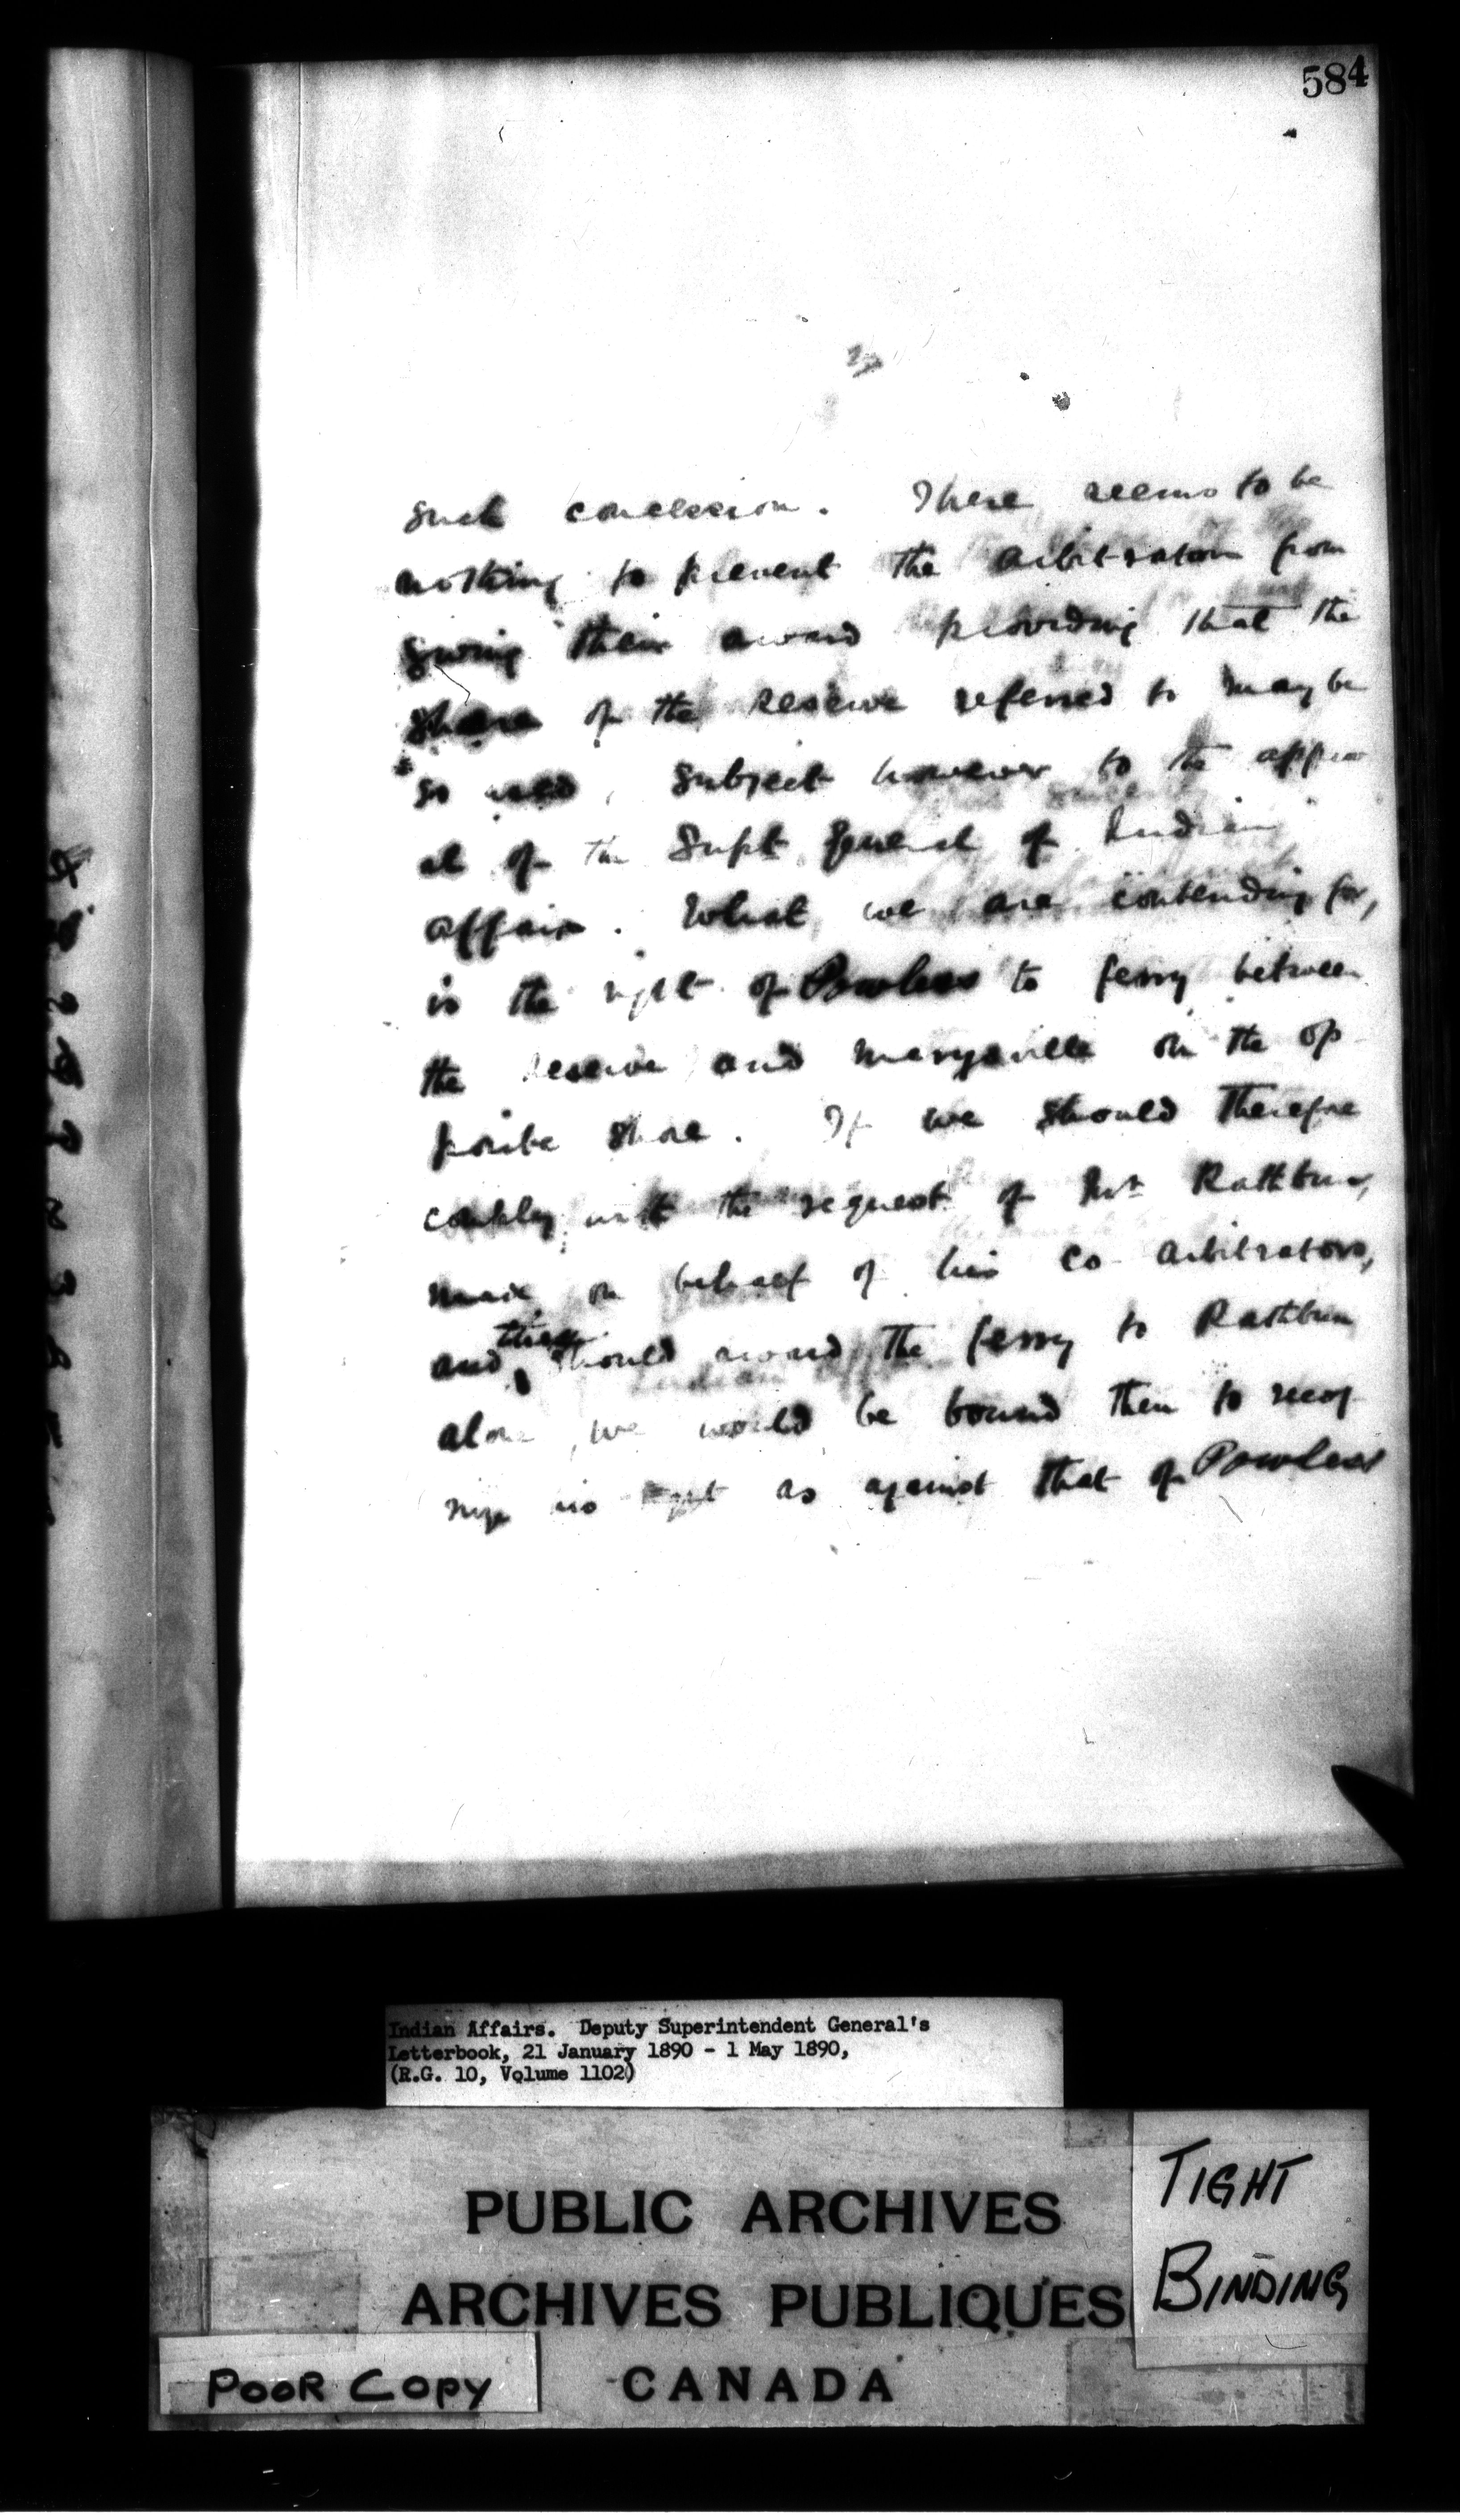 584
such conclusion. There seems to be
nothing to prevent the arbitrators from
giving their award providing that the
shore of the reserve referred to may be
so used, subject however to the approv
al of the Supt General of Indian
affairs. What we are contending for,
is the right of Powless to ferry between
the reserve and Marysville on the op
posite shore. If we should therefore
comply with the request of Mr Rathbun,
made on behalf of his co-arbitrators,
and they should award the ferry to Rathbun
alone, we would be bound then to recog
nize his right as against that of Powless
Indian Affairs. Deputy Superintendent General's
Letterbook, 21 January 1890 - 1 May 1890,
(R.G. 10, Volume 1102)
PUBLIC ARCHIVES
ARCHIVES PUBLIQUES
CANADA
TIGHT
BINDING
POOR COPY